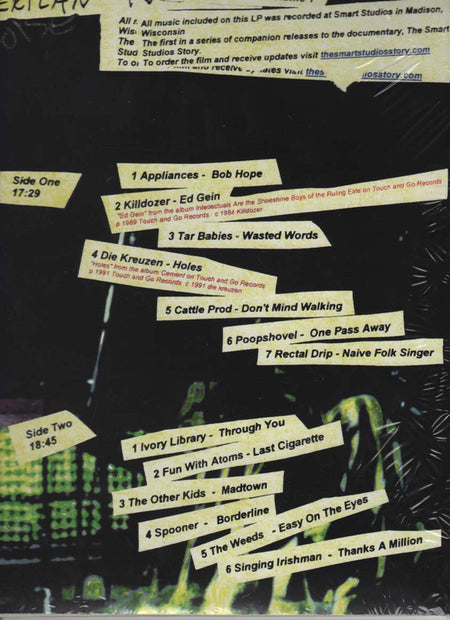 All r All music included on this LP was recorded at Smart Studios in Madison,
Wis Wisconsin
The The first in a series of companion releases to the documentary, The Smart
Stud Studios Story.
To or To order the film and receive updates visit thesmartstudiosstory.com
and receive updates visit thes iosstory.com
Side One
17:29
1 Appliances - Bob Hope
2 Killdozer - Ed Gein
"Ed Gein" from the album Intellectuals Are the Shoeshine Boys of the Ruling Elite on Touch and Go Records
p 1989 Touch and Go Records c 1984 Killdozer
3 Tar Babies - Wasted Words
4 Die Kreuzen - Holes
"Holes" from the album Cement on Touch and Go Records
p 1991 Touch and Go Records c 1991 die kreuzen
5 Cattle Prod - Don't Mind Walking
6 Poopshovel - One Pass Away
7 Rectal Drip - Naïve Folk Singer
Side Two
18:45
1 Ivory Library - Through You
2 Fun With Atoms - Last Cigarette
3 The Other Kids - Madtown
4 Spooner - Borderline
5 The Weeds - Easy On The Eyes
6 Singing Irishman - Thanks A Million